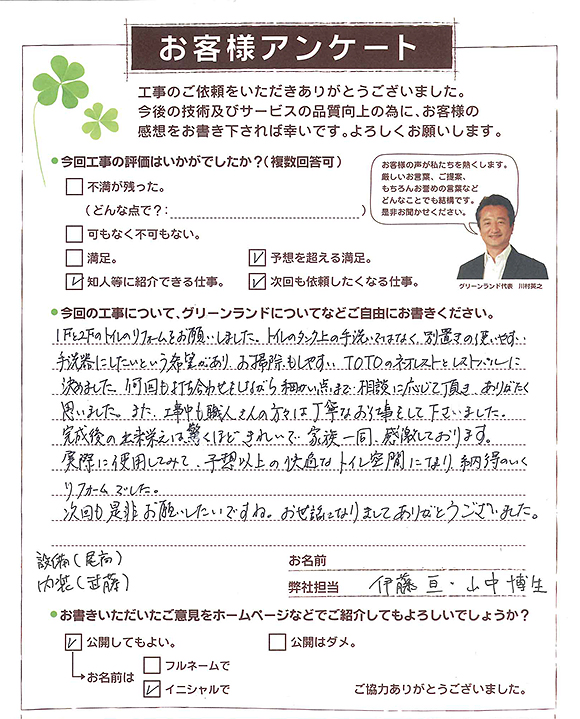 お客様アンケート
工事のご依頼をいただきありがとうございました。
今後の技術及びサービスの品質向上の為に、お客様の
感想をお書き下されば幸いです。よろしくお願いします。
●今回工事の評価はいかがでしたか？(複数回答可)
□不満が残った。
(どんな点で？: )
□可もなく不可もない。
□満足。
☑予想を超える満足。
☑知人等に紹介できる仕事。
☑次回も依頼したくなる仕事。
お客様の声が私たちを熱くします。
厳しいお言葉、ご提案、
もちろんお誉めの言葉など
どんなことでも結構です。
是非お聞かせください。
グリーンランド代表 川村英之
●今回の工事について、グリーンランドについてなどご自由にお書きください。
1Fと2Fのトイレのリフォームをお願いしました。トイレのタンク上の手洗いではなく、別置きの使いやすい
手洗器にしたいという希望があり、お掃除もしやすい TOTOのネオレストとレストパルに
決めました。何回も打ち合わせをしながら細かい点まで相談に応じて頂き、ありがたく
思いました。また、工事中も職人さんの方々は丁寧なお仕事をして下さいました。
完成後の出来栄えは驚くほどきれいで、家族一同、感激しております。
実際に使用してみて、予想以上の快適なトイレ空間になり、納得のいく
リフォームでした。
次回も是非お願いしたいですね。お世話になりましてありがとうございました。
設備(尾高)
内装(武藤)
お名前
弊社担当 伊藤 亘・山中 博生
●お書きいただいたご意見をホームページなどでご紹介してもよろしいでしょうか？
☑公開してもよい。
□公開はダメ。
→お名前は
□フルネームで
☑イニシャルで
ご協力ありがとうございました。